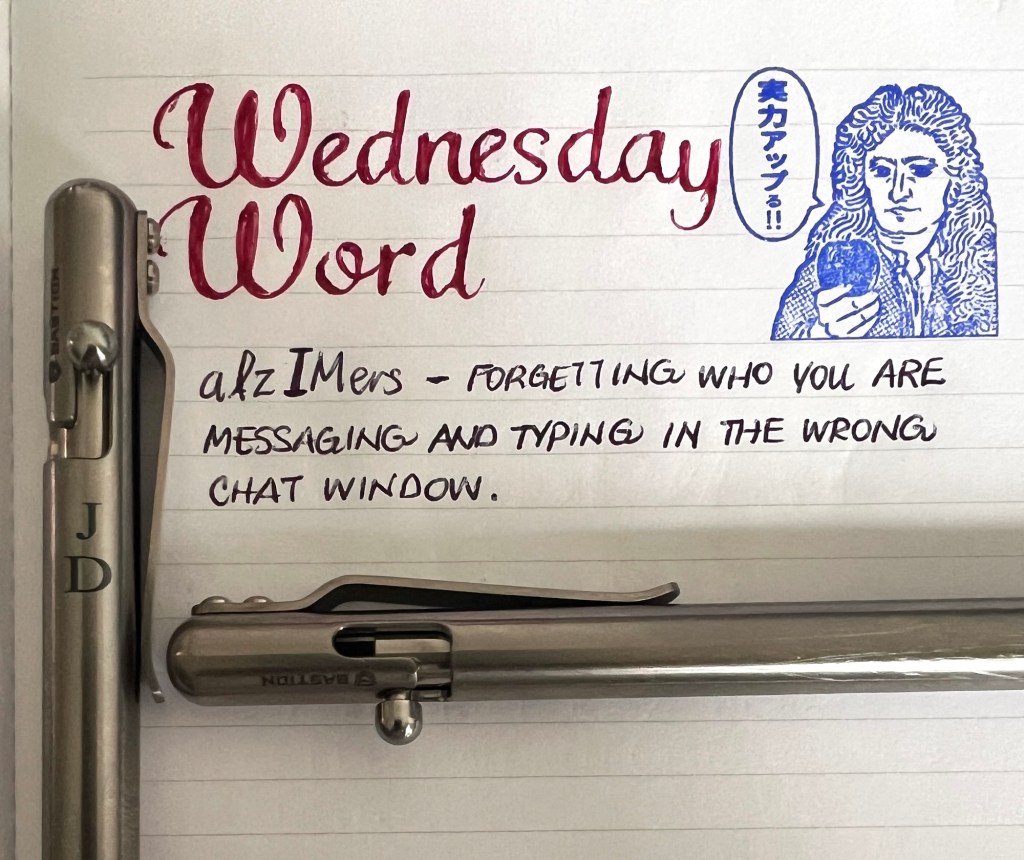 Wednesday
Word
実力アップる!!
alzIMers - FORGETTING WHO YOU ARE
MESSAGING AND TYPING IN THE WRONG
CHAT WINDOW.
BASTION
J
D
BASTION